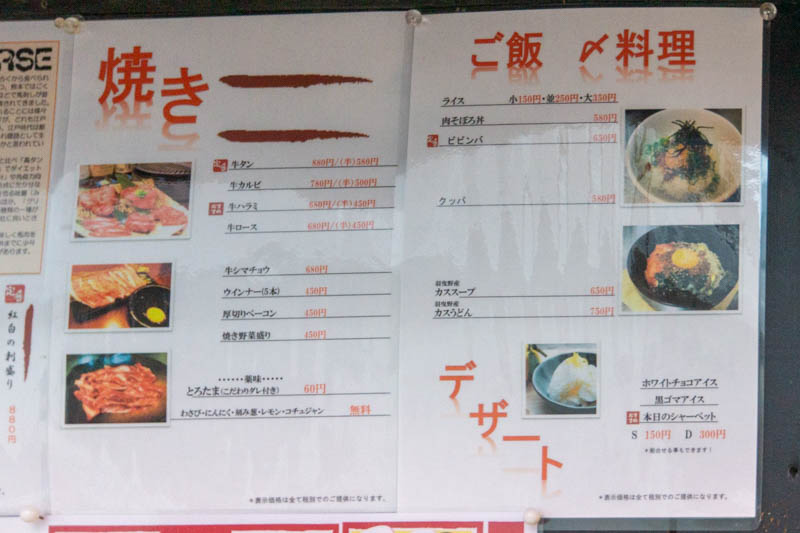 RSE
紅白の刺盛り
880円
焼き
牛タン 880円/(半)580円
牛カルビ 780円/(半)500円
牛ハラミ 680円/(半)450円
牛ロース 680円/(半)450円
牛シマチョウ 680円
ウインナー(5本) 450円
厚切りベーコン 450円
焼き野菜盛り 450円
‥‥‥薬味‥‥‥
とろたま(こだわりダレ付き) 60円
わさび・にんにく・刻み葱・レモン・コチュジャン 無料
*表示価格は全て税別でのご提供になります。
ご飯 〆料理
ライス 小150円・並250円・大350円
肉そぼろ丼 580円
ビビンバ 650円
クッパ 580円
羽曳野産
カススープ 650円
羽曳野産
カスうどん 750円
デザート
ホワイトチョコアイス
黒ゴマアイス
本日のシャーベット
S 150円 D 300円
*組合せる事もできます!
*表示価格は全て税別でのご提供になります。